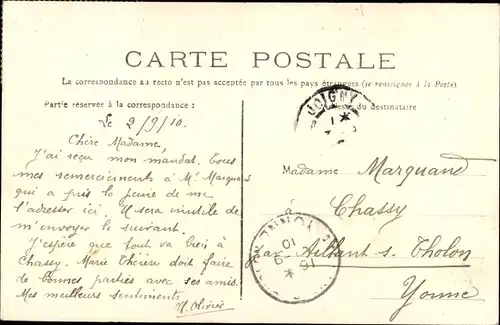 CARTE POSTALE
La correspondance au recto n'est pas acceptée par tous les pays étrangers (se renseigner à la Poste)
Partie réservée à la correspondance :
du destinataire
JOIGNY
Le 2/9/10.
Chère Madame,
J'ai reçu mon mandat. Tous
mes remerciements à Mr Marquand
qui a pris la peine de me
l'adresser ici. Il sera inutile de
m'envoyer le suivant.
J'espère que tout va bien à
Chassy. Marie Thérèse doit faire
de bonnes parties avec ses amis.
Mes meilleurs sentiments
Madame Marquand
Chassy
par Aillant s. Tholon
Yonne
YONNE